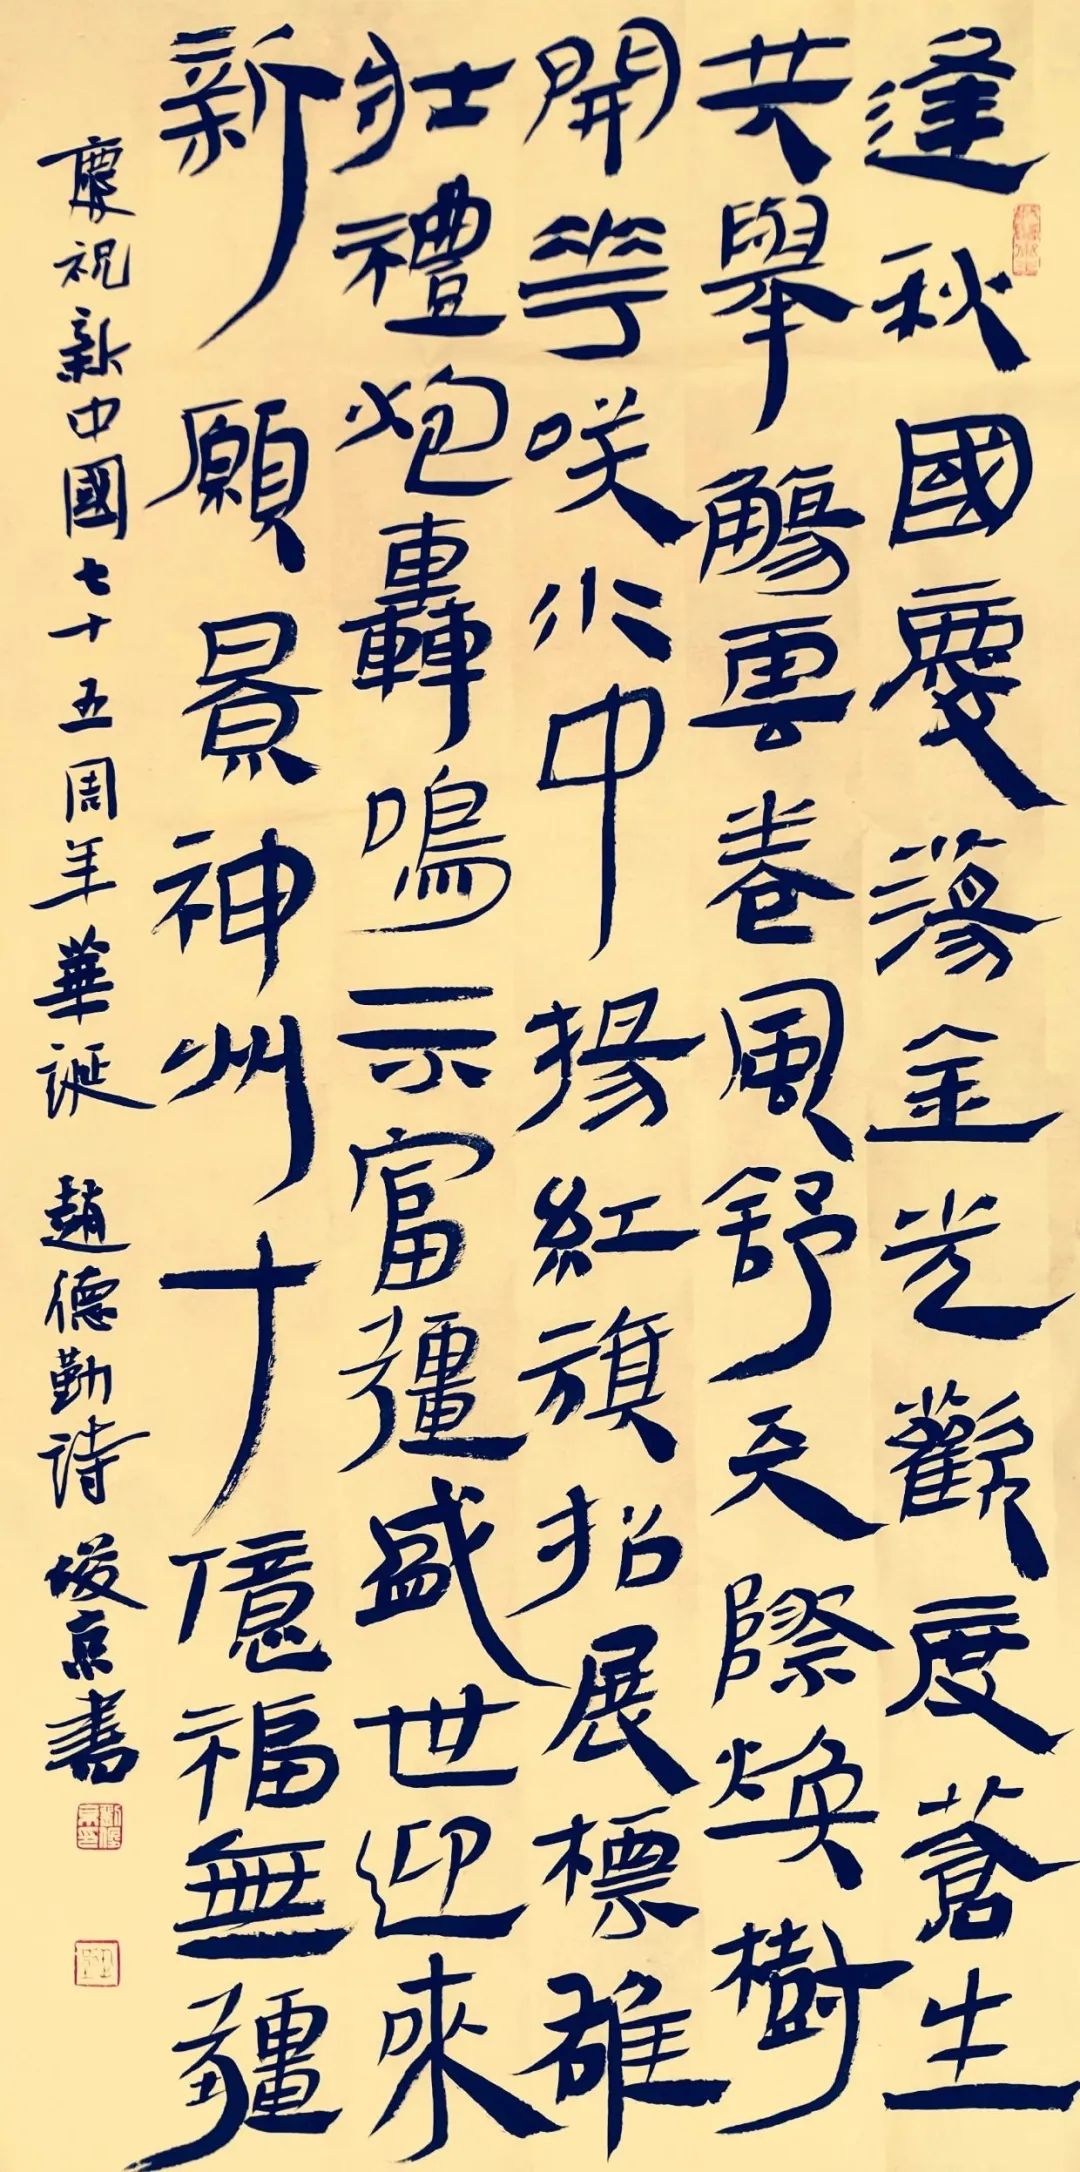 逢秋國慶蕩金光歡度蒼生
共舉觴雲卷風舒天際煥樹
開花咲水中揚紅旗招展標雄
壯禮炮轟鳴示富彊盛世迎來
新願景神州十億福無疆
慶祝新中國七十五周年華誕 趙德勤詩 俊京書